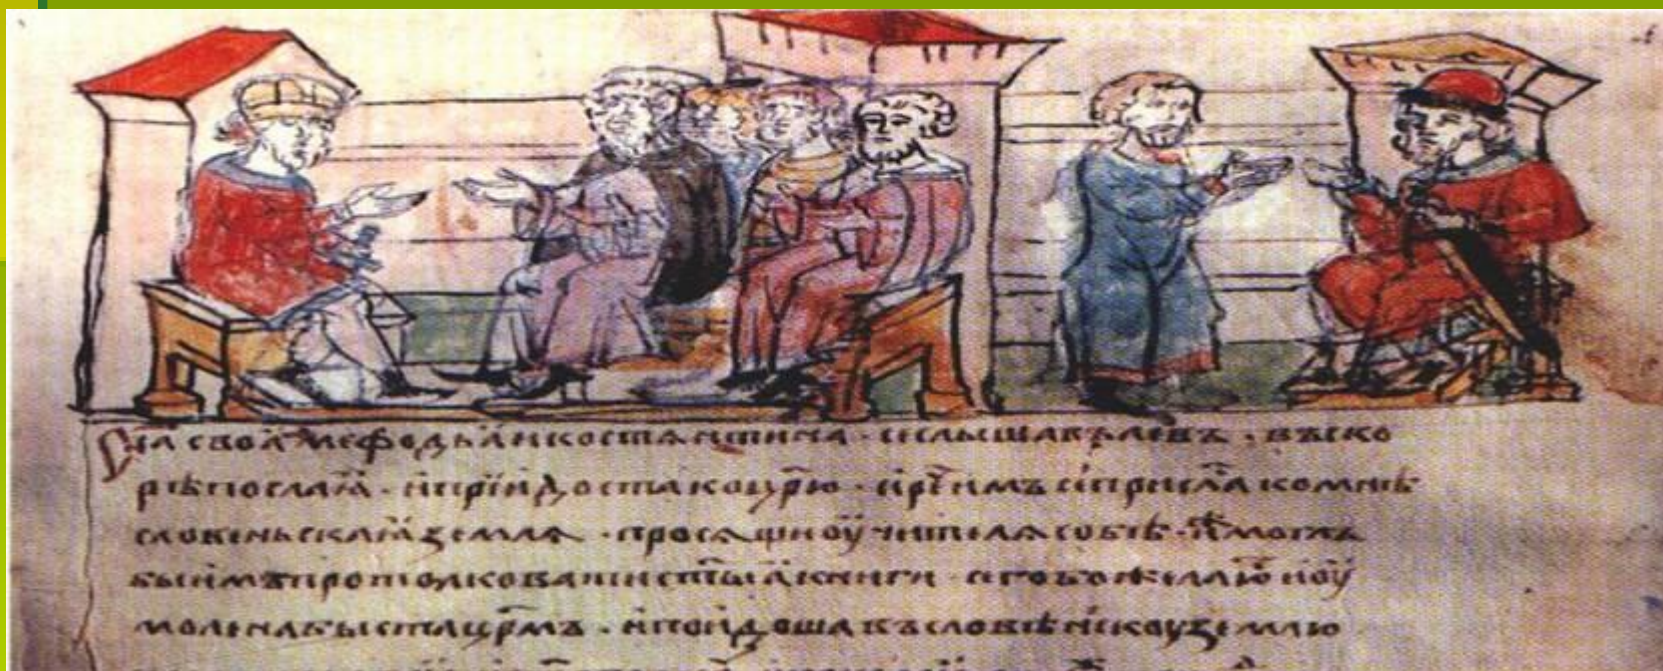 Сн҃а своѧ мефодьѧ и костѧнтина · и слышавъ левъ · въско
рѣ посла ѧ · и приидоста ко цр҃ю · и реч҃ имъ се присла ко мнѣ
словеньскаѧ землѧ · просѧщи оучителѧ собѣ · моглъ
бы имъ протолковати ст҃ыѧ книги · сего бо желаю и оу
молена быста цр҃мъ · и поидоша въ словѣньскоу землю